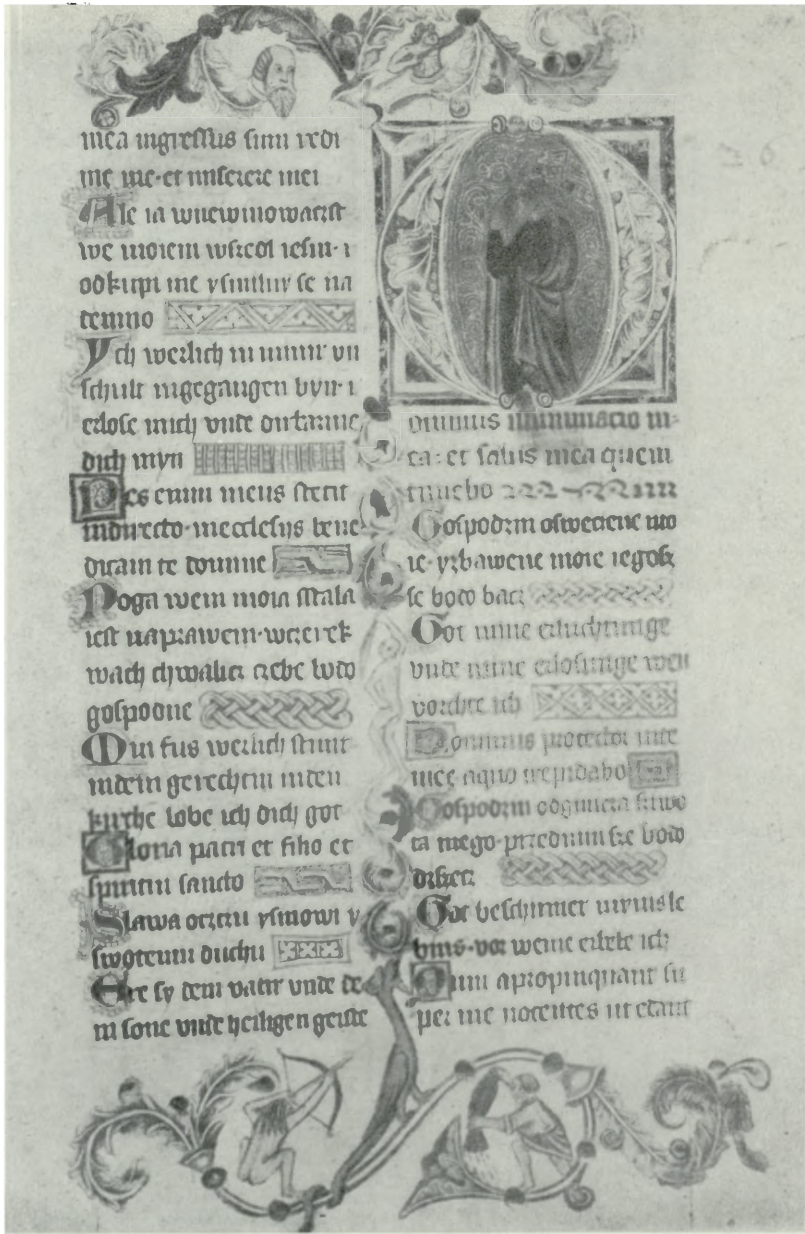 mea ingressus sum redi
me me et miserere mei
Ale ia wnewinowaczst
we moiem wszedl iesm i
odkupi me ysmiluy se na
temno
Ych werlich in miner vn
schult ingegangen byn i
erlose mich vnde dirbarme
dich myn
Pes enim meus stetit
indirecto mecclesiis bene
dicam te domine
Noga wem moia stala
iest naprawem wczerek
wach chwalicz czebe bodo
gospodne
Min fus werlich stunt
indem gerechtin inden
kirche lobe ich dich got
Gloria patri et filio et
spiritui sancto
Slawa oczczu ysinowi y
swotemu duchu
Ere sy dem vatir vnde de
m sone vnde heiligen geiste
Dominus illuminacio m
ea et salus mea quem
timebo
Gospodzin oswecene mo
ie yzbawene moie iegosz
se bodo bacz
Got mine erluchtunge
vnde mine erlosunge wen
vorchte ich
Dominus protector vite
mee aquo trepidabo
Gospodzin odgimcza sziwo
ta mego przednimsze bodo
drszecz
Got beschirmer minisle
bins vor weme erbebe ich
Dum apropinquant su
per me nocentes ut edant